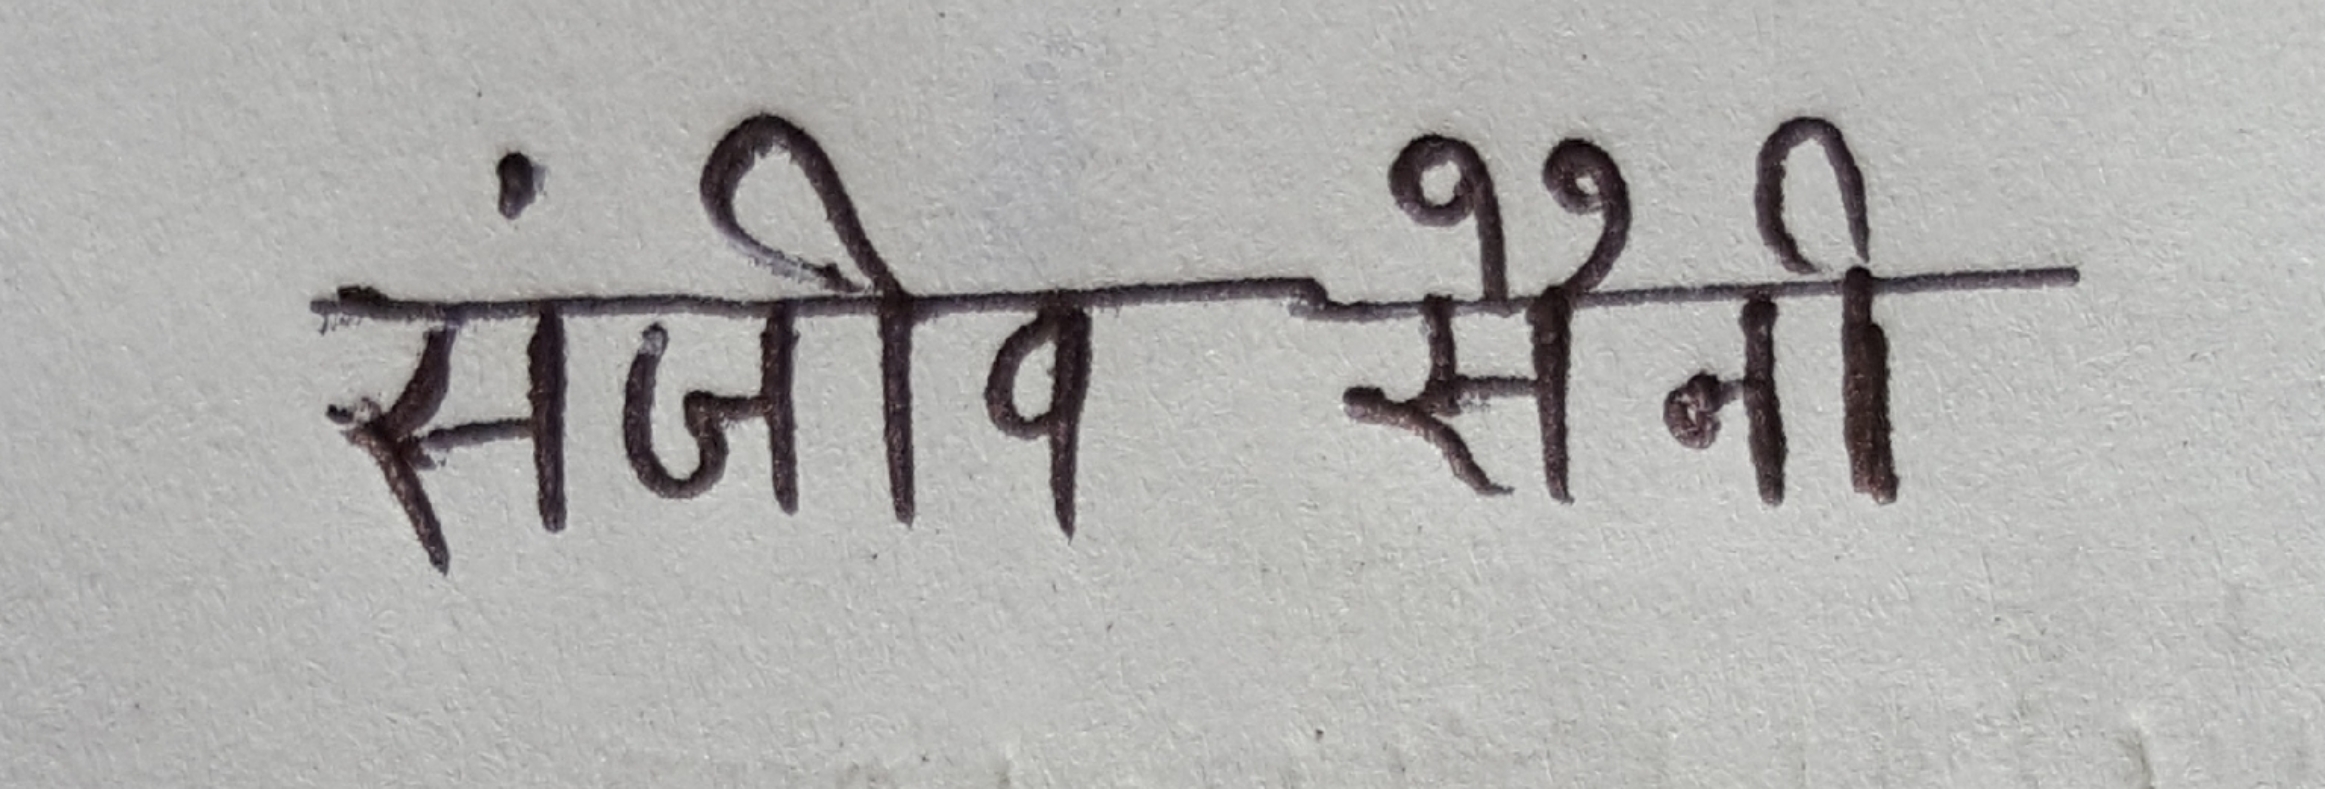 संजीव सैनी